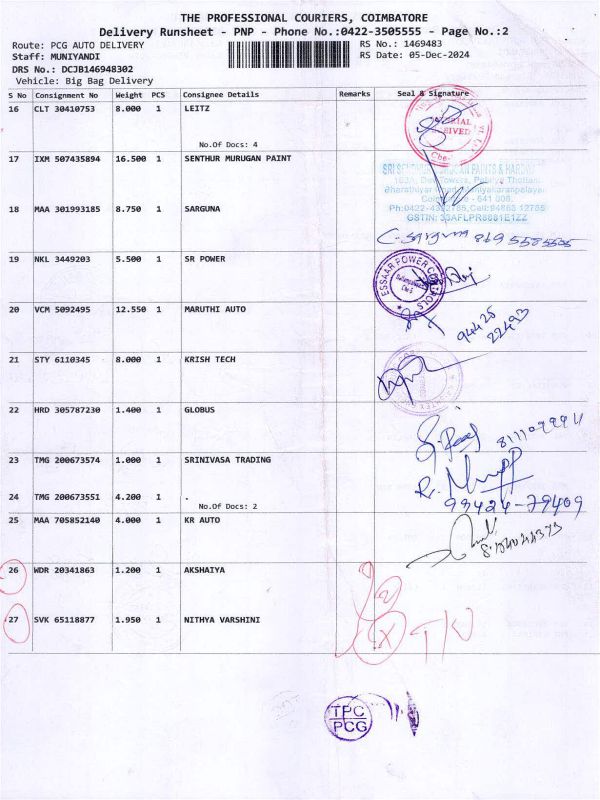 THE PROFESSIONAL COURIERS, COIMBATORE
Delivery Runsheet - PNP - Phone No.:0422-3505555 - Page No.:2
Route: PCG AUTO DELIVERY
RS No.: 1469483
Staff: MUNIYANDI
RS Date: 05-Dec-2024
DRS No.: DCJB146948302
Vehicle: Big Bag Delivery
S No Consignment No Weight PCS Consignee Details Remarks Seal & Signature
16 CLT 30410753 8.000 1 LEITZ
No.Of Docs: 4
17 IXM 507435894 16.500 1 SENTHUR MURUGAN PAINT
GSTIN: 33AFLPR6681E1ZZ
18 MAA 301993185 8.750 1 SARGUNA
19 NKL 3449203 5.500 1 SR POWER
ESSAAR POWER CONTROLS
20 VCM 5092495 12.550 1 MARUTHI AUTO
94425
22493
21 STY 6110345 8.000 1 KRISH TECH
22 HRD 305787230 1.400 1 GLOBUS
23 TMG 200673574 1.000 1 SRINIVASA TRADING
24 TMG 200673551 4.200 1 .
No.Of Docs: 2
99424-79409
25 MAA 705852140 4.000 1 KR AUTO
26 WDR 20341863 1.200 1 AKSHAIYA
27 SVK 65118877 1.950 1 NITHYA VARSHINI
TPC
PCG